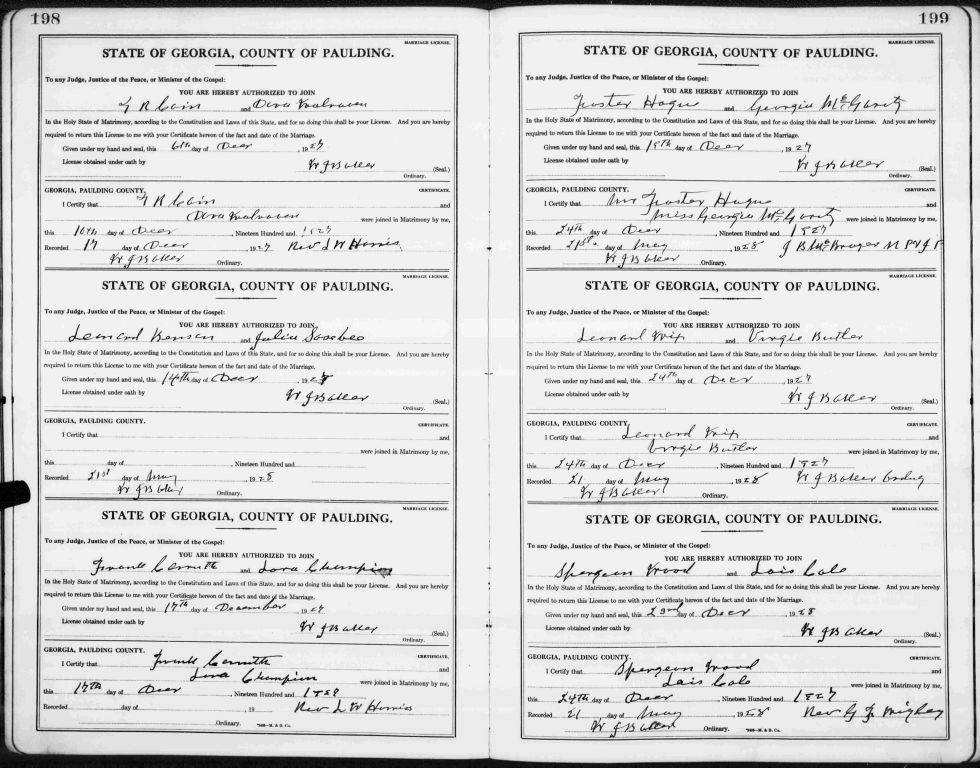 198
MARRIAGE LICENSE.
STATE OF GEORGIA, COUNTY OF PAULDING.
To any Judge, Justice of the Peace, or Minister of the Gospel:
YOU ARE HEREBY AUTHORIZED TO JOIN
R Cain and Dora
In the Holy State of Matrimony, according to the Constitution and Laws of this State, and for so doing this shall be your License. And you are hereby
required to return this License to me with your Certificate hereon of the fact and date of the Marriage.
Given under my hand and seal, this 6th day of Decr , 1927
License obtained under oath by W J Baker (Seal.)
Ordinary.
GEORGIA, PAULDING COUNTY. CERTIFICATE.
I Certify that R Cain and
Dora were joined in Matrimony by me,
this 10th day of Decr , Nineteen Hundred and 1927
Recorded 17 day of Decr , 1927 Rev L W Harris
W J Baker Ordinary.
MARRIAGE LICENSE.
STATE OF GEORGIA, COUNTY OF PAULDING.
To any Judge, Justice of the Peace, or Minister of the Gospel:
YOU ARE HEREBY AUTHORIZED TO JOIN
Leonard Benson and Julia
In the Holy State of Matrimony, according to the Constitution and Laws of this State, and for so doing this shall be your License. And you are hereby
required to return this License to me with your Certificate hereon of the fact and date of the Marriage.
Given under my hand and seal, this 14th day of Decr , 19
License obtained under oath by W J Baker (Seal.)
Ordinary.
GEORGIA, PAULDING COUNTY. CERTIFICATE.
I Certify that and
were joined in Matrimony by me,
this day of , Nineteen Hundred and
Recorded 21st day of May , 1928
W J Baker Ordinary.
MARRIAGE LICENSE.
STATE OF GEORGIA, COUNTY OF PAULDING.
To any Judge, Justice of the Peace, or Minister of the Gospel:
YOU ARE HEREBY AUTHORIZED TO JOIN
Frank and Lora Champion
In the Holy State of Matrimony, according to the Constitution and Laws of this State, and for so doing this shall be your License. And you are hereby
required to return this License to me with your Certificate hereon of the fact and date of the Marriage.
Given under my hand and seal, this 17th day of December , 1927
License obtained under oath by W J Baker (Seal.)
Ordinary.
GEORGIA, PAULDING COUNTY. CERTIFICATE.
I Certify that Frank and
Lora Champion were joined in Matrimony by me,
this 17th day of Decr , Nineteen Hundred and
Recorded day of , 19 Rev L W Harris
Ordinary.
199
MARRIAGE LICENSE.
STATE OF GEORGIA, COUNTY OF PAULDING.
To any Judge, Justice of the Peace, or Minister of the Gospel:
YOU ARE HEREBY AUTHORIZED TO JOIN
Foster Hague and Georgia McGarity
In the Holy State of Matrimony, according to the Constitution and Laws of this State, and for so doing this shall be your License. And you are hereby
required to return this License to me with your Certificate hereon of the fact and date of the Marriage.
Given under my hand and seal, this 19th day of Decr , 1927
License obtained under oath by W J Baker (Seal.)
Ordinary.
GEORGIA, PAULDING COUNTY. CERTIFICATE.
I Certify that Mr Foster Hague and
Miss Georgia McGarity were joined in Matrimony by me,
this 24th day of Decr , Nineteen Hundred and 1927
Recorded 21st day of May , 1928 J B
W J Baker Ordinary.
MARRIAGE LICENSE.
STATE OF GEORGIA, COUNTY OF PAULDING.
To any Judge, Justice of the Peace, or Minister of the Gospel:
YOU ARE HEREBY AUTHORIZED TO JOIN
Leonard and Virgie Butler
In the Holy State of Matrimony, according to the Constitution and Laws of this State, and for so doing this shall be your License. And you are hereby
required to return this License to me with your Certificate hereon of the fact and date of the Marriage.
Given under my hand and seal, this day of Decr , 1927
License obtained under oath by W J Baker (Seal.)
Ordinary.
GEORGIA, PAULDING COUNTY. CERTIFICATE.
I Certify that Leonard and
Virgie Butler were joined in Matrimony by me,
this 24th day of Decr , Nineteen Hundred and 1927
Recorded 21 day of May , 1928 W J Baker
W J Baker Ordinary.
MARRIAGE LICENSE.
STATE OF GEORGIA, COUNTY OF PAULDING.
To any Judge, Justice of the Peace, or Minister of the Gospel:
YOU ARE HEREBY AUTHORIZED TO JOIN
Spurgeon Wood and Lois Cole
In the Holy State of Matrimony, according to the Constitution and Laws of this State, and for so doing this shall be your License. And you are hereby
required to return this License to me with your Certificate hereon of the fact and date of the Marriage.
Given under my hand and seal, this day of Decr , 1928
License obtained under oath by W J Baker (Seal.)
Ordinary.
GEORGIA, PAULDING COUNTY. CERTIFICATE.
I Certify that Spurgeon Wood and
Lois Cole were joined in Matrimony by me,
this 24th day of Decr , Nineteen Hundred and 1927
Recorded 21 day of May , 1928 Rev G
W J Baker Ordinary.